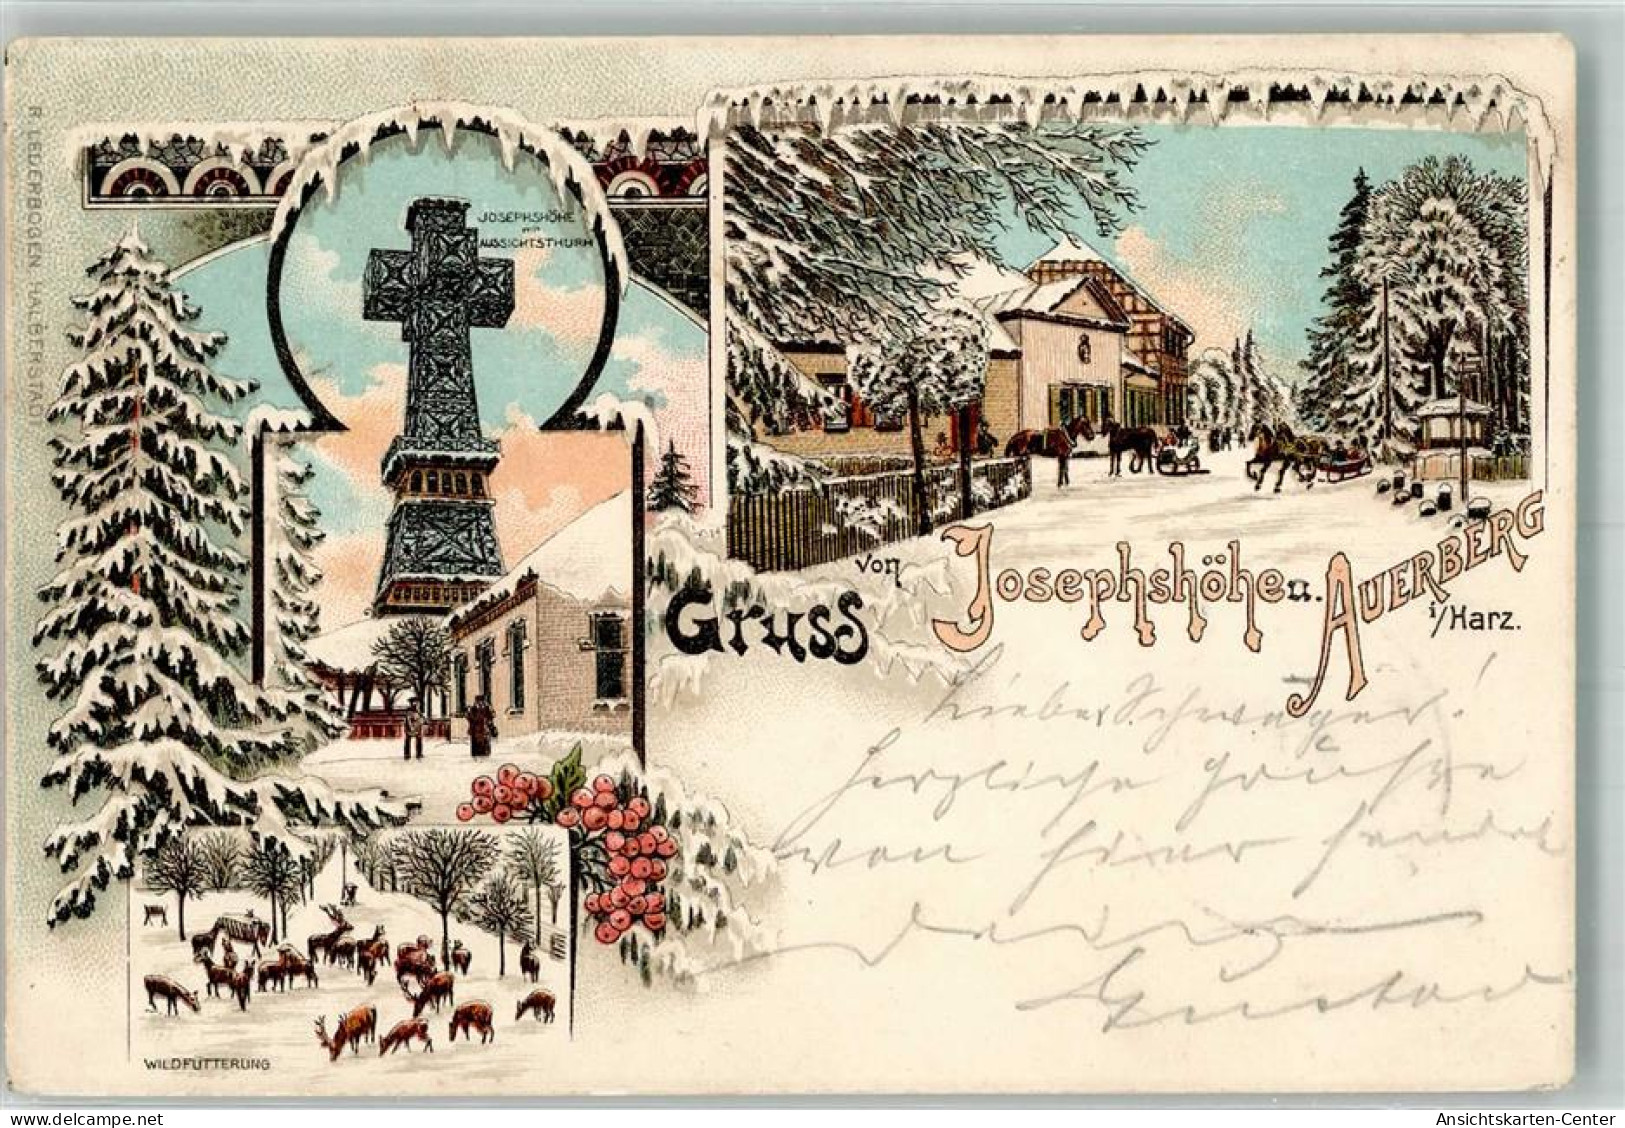 R. LEDERBOGEN, HALBERSTADT
JOSEPHSHÖHE
MIT
AUSSICHTSTHURM
Gruss von Josephshöhe u. AUERBERG
i/Harz.
Lieber Schwager!
herzliche Grüße
von hier sendet
Dein
Gustav
WILDFÜTTERUNG
www.oldthing.de
Ansichtskarten-Center